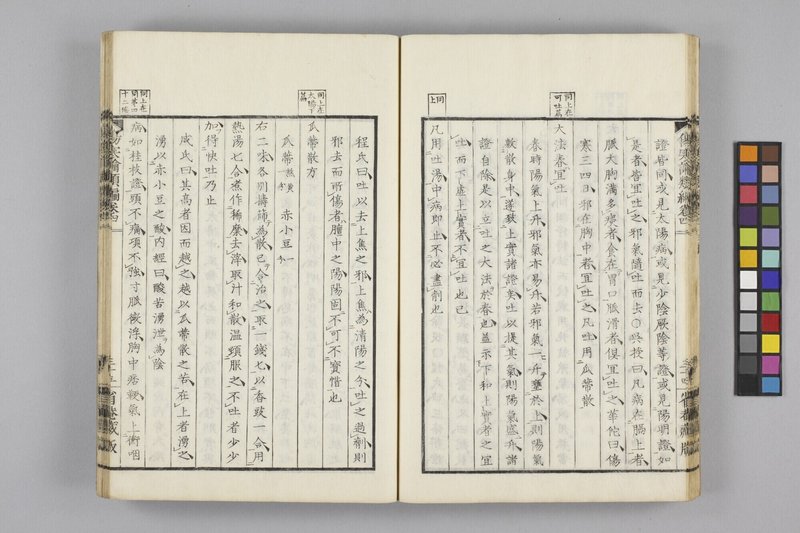 同上在可吐篇
證皆同或見太陽病或見少陰厥陰等證或見陽明證如
是者皆宜吐之邪氣隨吐而去○吳授曰凡病在膈上者
脈大胸滿多痰者食在胃口脈滑者俱宜吐之華佗曰傷
寒三四日邪在胸中者宜吐之凡吐用瓜蒂散
大法春宜吐
春時陽氣上升邪氣亦易升若邪氣一升壅於上則陽氣
敷散身中遂致上實諸證矣吐以提其氣則陽氣蓋升諸
證自除是以立吐之大法於春也蓋示下和上實者之宜
吐而下虛上實者不宜吐也已
同上
凡用吐湯中病即止不必盡劑也
程氏曰吐以去上焦之邪上焦為清陽之分吐之過劑則
邪去而所傷者膻中之陽陽固不可不寶惜也
同上在太陽下篇
瓜蒂散方
瓜蒂 赤小豆
右二味各別擣篩為散已合治之取一錢七以香豉一合用
熱湯七合煮作稀糜去滓取汁和散溫頓服之不吐者少少
加得快吐乃止
成氏曰其高者因而越之越以瓜蒂散之苦在上者湧之
湧以赤小豆之酸內經曰酸苦湧泄為陰
病如桂枝證頭不痛項不強寸脈微浮胸中痞鞕氣上衝咽